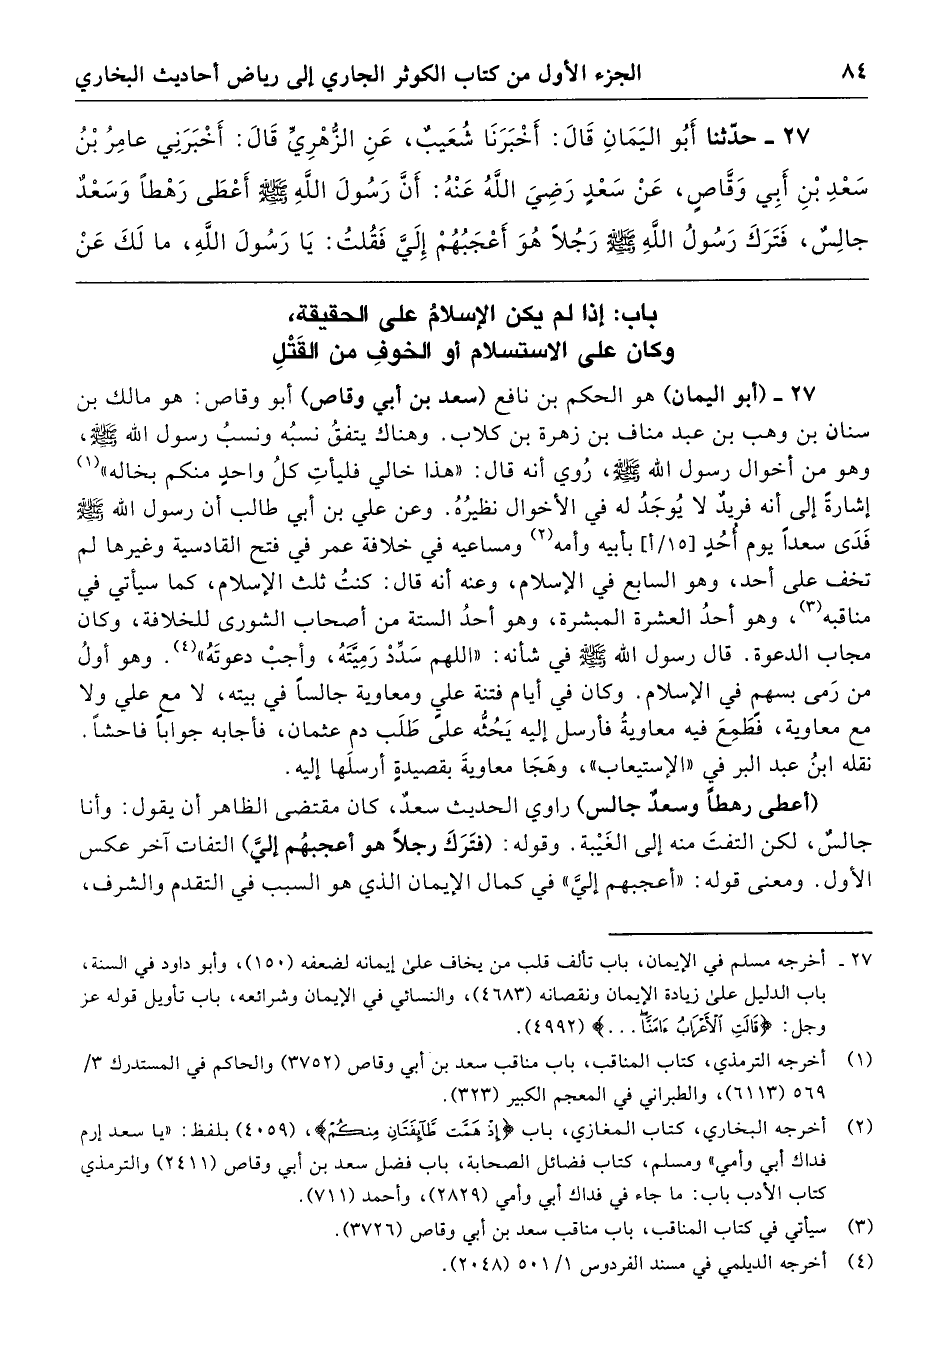 ٨٤ الجزء الأول من كتاب الكوثر الجاري إلى رياض أحاديث البخاري
٢٧ - حدّثنا أَبُو اليَمَانِ قَالَ: أَخْبَرَنَا شُعَيبٌ، عَنِ الزُّهْرِيِّ قَالَ: أَخْبَرَنِي عامِرُ بْنُ
سَعْدِ بْنِ أَبِي وَقَّاصٍ، عَنْ سَعْدٍ رَضِيَ اللَّهُ عَنْهُ: أَنَّ رَسُولَ اللَّهِ ﷺ أَعْطَى رَهْطاً وَسَعْدٌ
جالِسٌ، فَتَرَكَ رَسُولُ اللَّهِ ﷺ رَجُلاً هُوَ أَعْجَبُهُمْ إِلَيَّ فَقُلتُ: يَا رَسُولَ اللَّهِ، ما لَكَ عَنْ
باب: إذا لم يكن الإسلامُ على الحقيقة،
وكان على الاستسلام أو الخوفِ من القَتْلِ
٢٧ - (أبو اليمان) هو الحكم بن نافع (سعد بن أبي وقاص) أبو وقاص: هو مالك بن
سنان بن وهب بن عبد مناف بن زهرة بن كلاب. وهناك يتفقُ نسبُه ونسبُ رسول الله ﷺ،
وهو من أخوال رسول الله ﷺ، رُوي أنه قال: «هذا خالي فليأتِ كلُ واحدٍ منكم بخاله»(١)
إشارةً إلى أنه فريدٌ لا يُوجَدُ له في الأخوال نظيرُهُ. وعن علي بن أبي طالب أن رسول الله ﷺ
فَدَى سعداً يوم أُحُدٍ [١٥/أ] بأبيه وأمه(٢) ومساعيه في خلافة عمر في فتح القادسية وغيرها لم
تخف على أحد، وهو السابع في الإسلام، وعنه أنه قال: كنتُ ثلث الإسلام، كما سيأتي في
مناقبه(٣)، وهو أحدُ العشرة المبشرة، وهو أحدُ الستة من أصحاب الشورى للخلافة، وكان
مجاب الدعوة. قال رسول الله ﷺ في شأنه: «اللهم سَدِّدْ رَمِيَّتَهُ، وأجبْ دعوتَهُ»(٤). وهو أولُ
من رَمى بسهم في الإسلام. وكان في أيام فتنة علي ومعاوية جالساً في بيته، لا مع علي ولا
مع معاوية، فَطَمِعَ فيه معاويةُ فأرسل إليه يَحُثُّه على طَلَب دم عثمان، فأجابه جواباً فاحشاً.
نقله ابنُ عبد البر في «الإستيعاب»، وهَجَا معاويةَ بقصيدةٍ أرسلَها إليه.
(أعطى رهطاً وسعدٌ جالس) راوي الحديث سعدٌ، كان مقتضى الظاهر أن يقول: وأنا
جالسٌ، لكن التفتَ منه إلى الغَيْبة. وقوله: (فتَرَكَ رجلاً هو أعجبهُم إليَّ) التفات آخر عكس
الأول. ومعنى قوله: «أعجبهم إليَّ» في كمال الإيمان الذي هو السبب في التقدم والشرف،
٢٧ - أخرجه مسلم في الإيمان، باب تألف قلب من يخاف على إيمانه لضعفه (١٥٠)، وأبو داود في السنة،
باب الدليل على زيادة الإيمان ونقصانه (٤٦٨٣)، والنسائي في الإيمان وشرائعه، باب تأويل قوله عز
وجل: ﴿قَالَتِ ٱلْأَعْرَابُ ءَامَنَّا ...﴾ (٤٩٩٢).
(١) أخرجه الترمذي، كتاب المناقب، باب مناقب سعد بن أبي وقاص (٣٧٥٢) والحاكم في المستدرك ٣/
٥٦٩ (٦١١٣)، والطبراني في المعجم الكبير (٣٢٣).
(٢) أخرجه البخاري، كتاب المغازي، باب ﴿إِذْ هَمَّت طَّآئِفَتَانِ مِنكُمْ﴾، (٤٠٥٩) بلفظ: «يا سعد إرم
فداك أبي وأمي» ومسلم، كتاب فضائل الصحابة، باب فضل سعد بن أبي وقاص (٢٤١١) والترمذي
كتاب الأدب باب: ما جاء في فداك أبي وأمي (٢٨٢٩)، وأحمد (٧١١).
(٣) سيأتي في كتاب المناقب، باب مناقب سعد بن أبي وقاص (٣٧٢٦).
(٤) أخرجه الديلمي في مسند الفردوس ١/ ٥٠١ (٢٠٤٨).